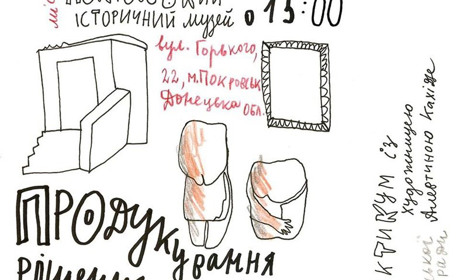 історичний музей
о 15:00
вул. Горького,
22, м. Покровськ
Донецька обл.
Продукування
рішень
із
художницею
Алевтиною Кахідзе